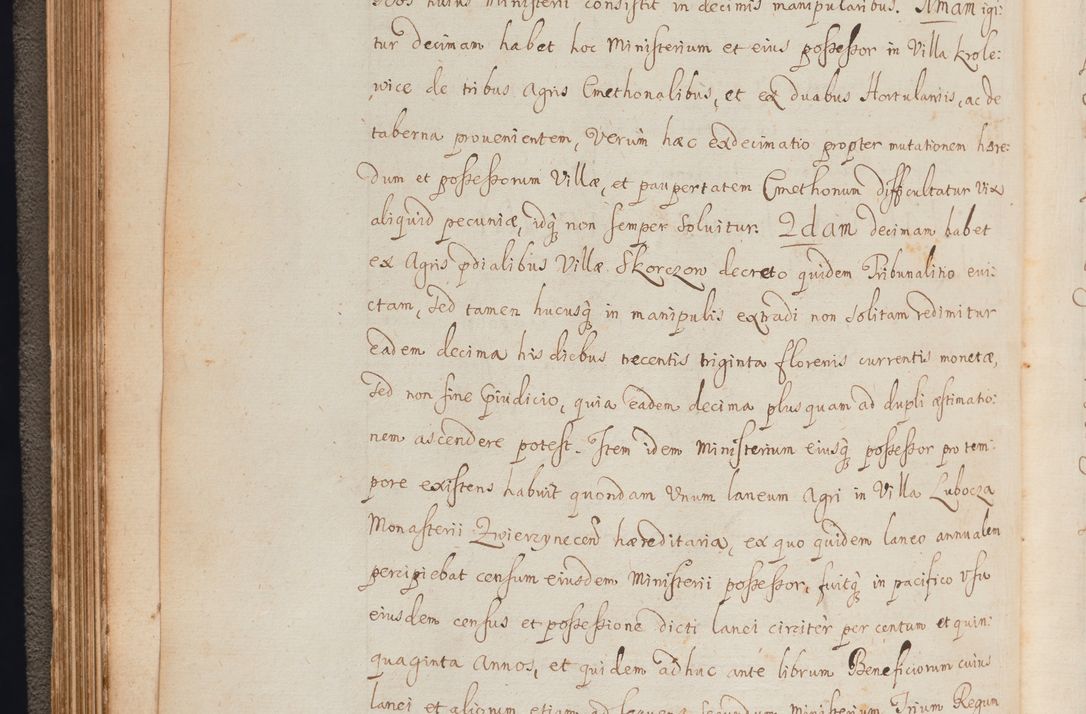 huius Ministerii consistit in decimis manipularibus. Amam igi:
tur decimam habet hoc Ministerium et eius possessor in Villa Krole:
wice de tribus Agris Cmethonalibus, et ex duabus Hortulaniis, ac de
taberna prouenientem, Verum haec exdecimatio propter mutationem haere:
dum et possessorum Villae, et paupertatem Cmethonum difficultatur Vix
aliquid pecuniae, idq; non semper Soluitur. 2dam decimam habet
ex Agris pdialibus Villae Skorczow decreto quidem Tribunalitio eui:
ctam, Sed tamen hucusq; in manipulis extradi non Solitam redimitur
eadem decima his diebus trecentis triginta florenis currentis monetae,
Sed non sine piudicio, quia eadem decima plus quam ad dupli aestimatio:
nem ascendere potest. Item idem Ministerium eiusq; possessor pro tem:
pore existens habuit quondam Vnum laneum Agri in Villa Lubocza
Monasterii Zwierzynecen haereditaria, ex quo quidem laneo annualem
percipiebat censum eiusdem Ministerii possessor, fuitq; in pacifico Vsu
eiusdem census et possessione dicti lanei circiter per centum et quin:
quaginta Annos, et quidem adhuc ante librum Beneficiorum cuius
lanei et aliorum etiam ad secundum Ministerium Trium Regum